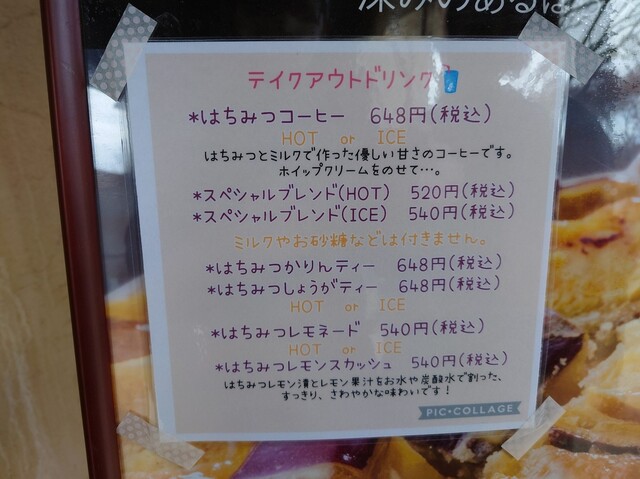 深みのある
テイクアウトドリンク
*はちみつコーヒー 648円(税込)
HOT or ICE
はちみつとミルクで作った優しい甘さのコーヒーです。
ホイップクリームをのせて…。
*スペシャルブレンド(HOT) 520円(税込)
*スペシャルブレンド(ICE) 540円(税込)
ミルクやお砂糖などは付きません。
*はちみつかりんティー 648円(税込)
*はちみつしょうがティー 648円(税込)
HOT or ICE
*はちみつレモネード 540円(税込)
HOT or ICE
*はちみつレモンスカッシュ 540円(税込)
はちみつレモン漬とレモン果汁をお水や炭酸水で割った、
すっきり、さわやかな味わいです!
PIC•COLLAGE